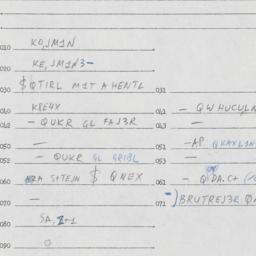 010 KO,JM1N
020 KE,JM1N3-
030 $QTIRL M1T A HENTL 031
040 KBE4X 041 - QWHUCUL
042 - QUKR GL FAJ3R 043 -
050 — 051 -AP QKAXL1N
052 - QUKR GL GRIBL 053 -
060 S+TEJN $ QNEX 061 - QIDA.C+
070 — 071 -)BRUTREJ3R
080 SA, 2+1
090 O